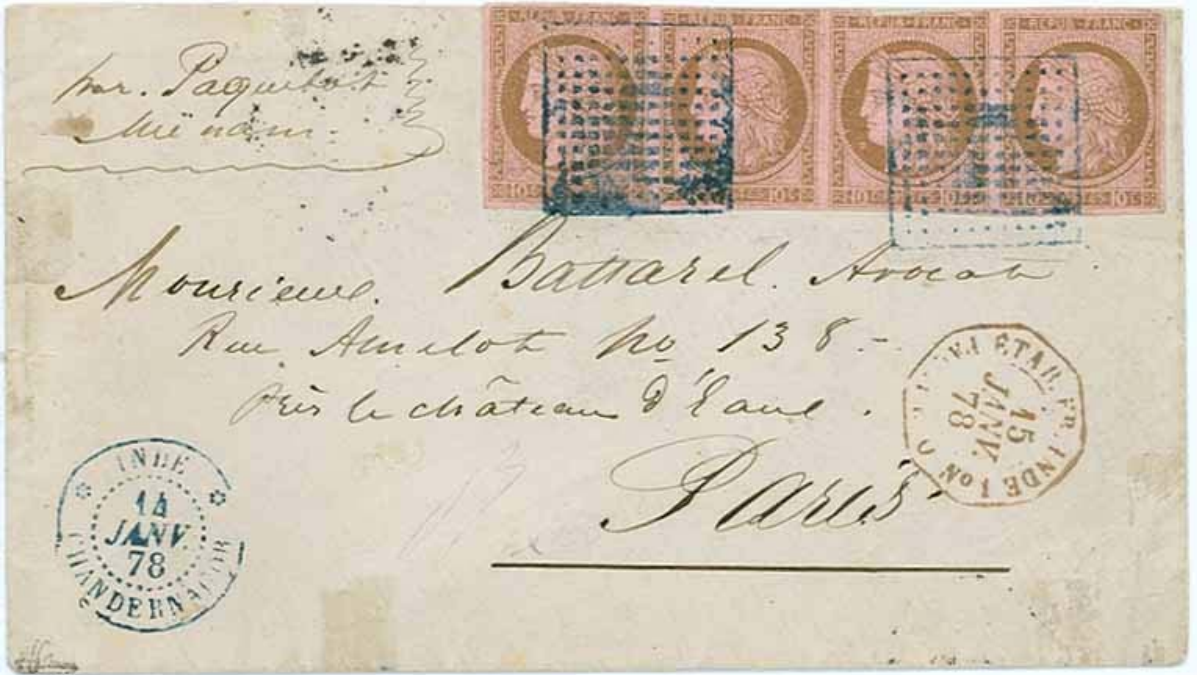 par. Paquebot
Mënam.
REPUB. FRANC. REPUB. FRANC. REPUB. FRANC. REPUB. FRANC.
10 C 10 C 10 C 10 C
Monsieur. Battarel. Avocat
Rue Amelot No 138 -
Près le château d'Eau.
Paris
INDE
14
JANV.
78
CHANDERNAGOR
ETAB. FR. INDE
15
JANV.
78